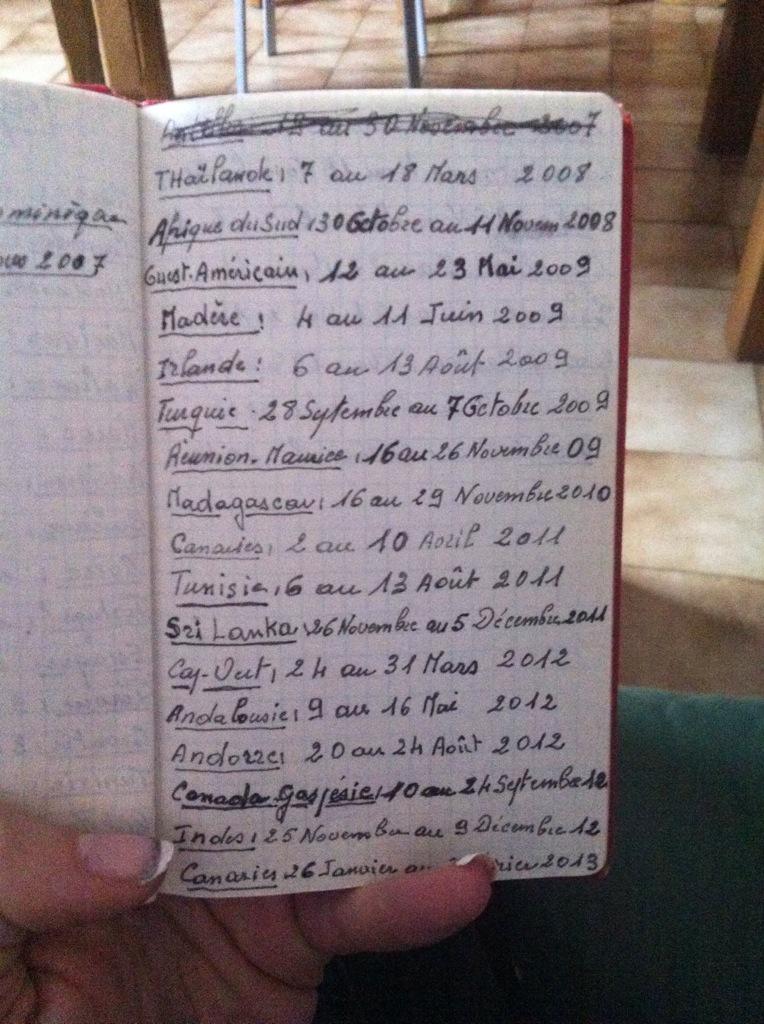 2007
12 au 30 Novembre 2007
THaïlande, 7 au 18 Mars 2008
Afrique du Sud, 30 Octobre au 11 Novem 2008
Ouest-Américain, 12 au 23 Mai 2009
Madère : 4 au 11 Juin 2009
Irlande : 6 au 13 Août 2009
Turquie . 28 Septembre au 7 Octobre 2009
Réunion-Maurice, 16 au 26 Novembre 09
Madagascar, 16 au 29 Novembre 2010
Canaries, 2 au 10 Avril 2011
Tunisie, 6 au 13 Août 2011
Sri Lanka, 26 Novembre au 5 Décembre 2011
Cap-Vert, 24 au 31 Mars 2012
Andalousie, 9 au 16 Mai 2012
Andorre, 20 au 24 Août 2012
Canada Gaspésie, 10 au 24 Septembre 12
Indes, 25 Novembre au 9 Décembre 12
Canaries 26 Janvier au 2013